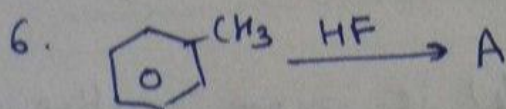 6. CH3 HF A